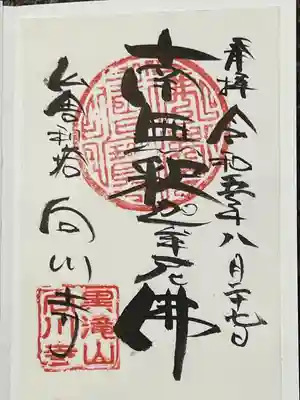 奉拝 令和五年八月
南無釈迦牟尼佛
向川寺
黒滝山
向川寺